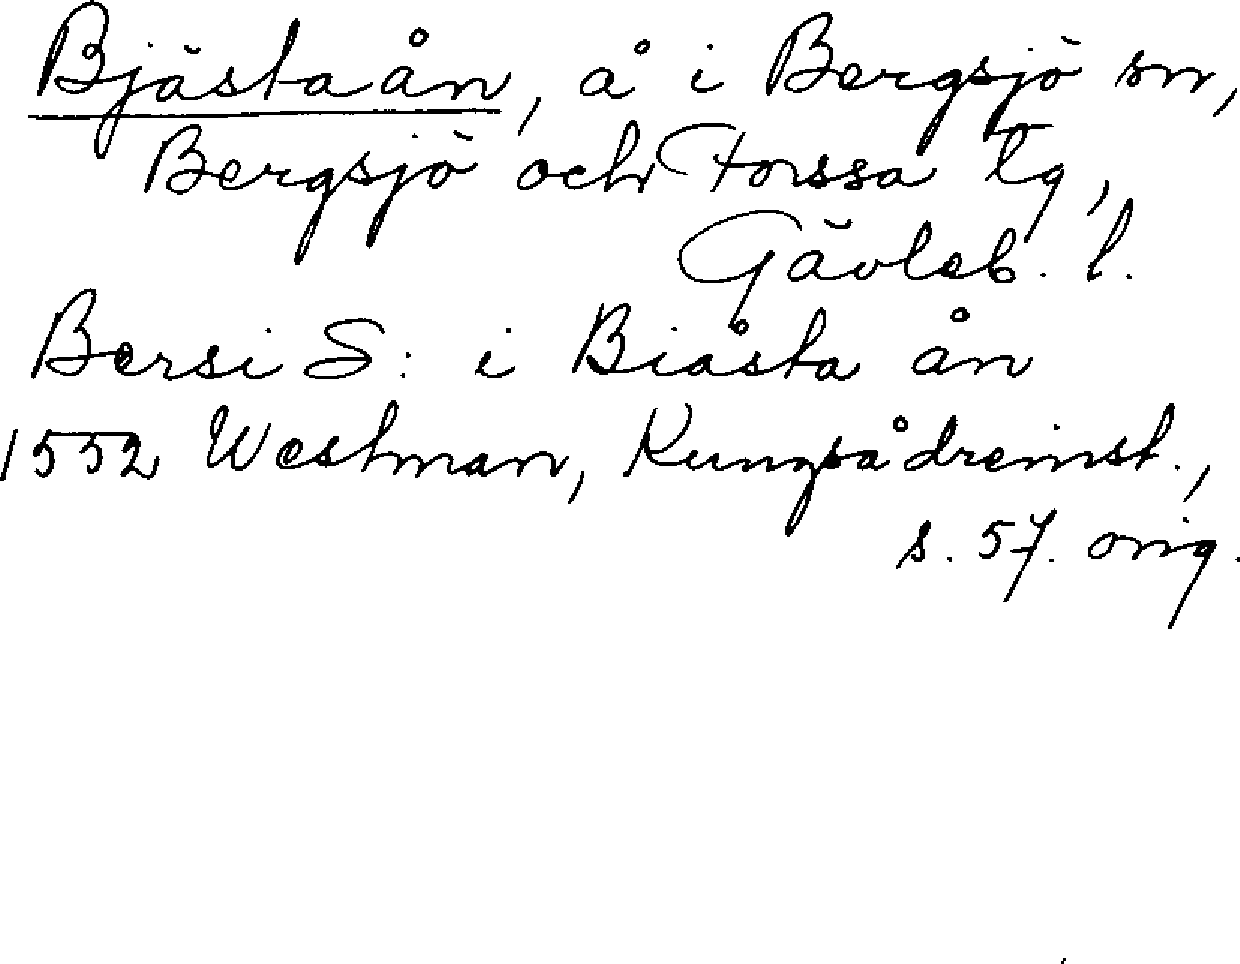 Bjästaån, å i Bergsjö sn,
Bergsjö och Forssa tg,
Gävleb. l.
Bersi S: i Biåsta ån
1552 Westman, Kungsådreinst.,
s. 57. orig.